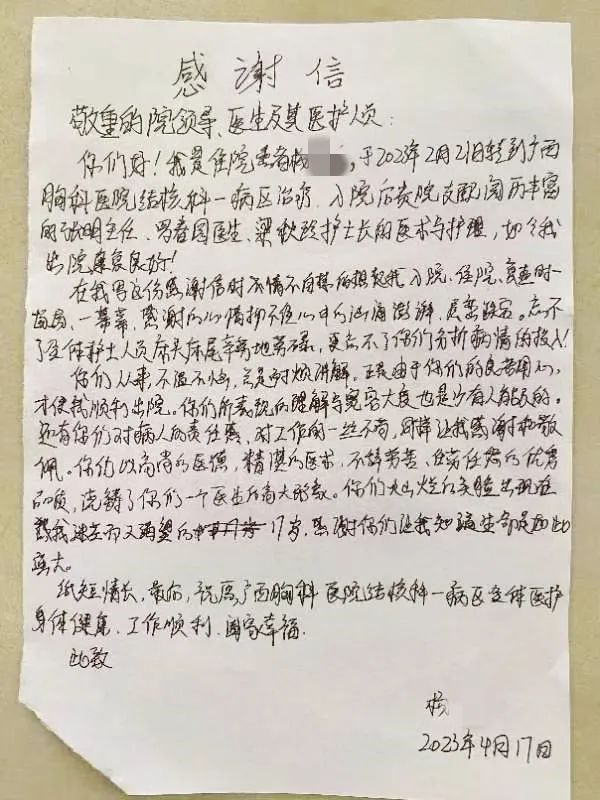 感谢信
敬重的院领导、医生及其医护人员：
你们好！我是住院患者杨，于2023年2月21日转到广西
胸科医院结核科一病区治疗，入院后贵院友
的张明主任、医生、梁秋护士长的医术与护理，如今我
出院康复良好！
在我写这份感谢信时不情不自禁的想起我入院、住院、时一
一幕幕，感谢的心情抑不住心中的汹涌澎湃、忘不
了全体护士人员床头床尾辛劳地劳碌，更忘不了你们分析病情的投入！
你们从来，不温不火，总是耐烦讲解。正是由于你们的良苦用心，
才使我顺利出院。你们所表现的理解与宽容大度也是少有人能及的。
还有你们对病人的责任感，对工作的一丝不苟，同样让我感谢和敬
佩。你们以高尚的医德，精湛的医术，不辞劳苦、任劳任怨的优秀
品质，浇铸了你们一个医生的高大形象。你们灿烂的笑脸出现在
我又渴望的17岁，感谢你们让我知都是如此
纸短情长，最后，祝愿广西胸科医院结核科一病区全体医护
身体健康、工作顺利、阖家幸福.
此致
杨
2023年4月17日